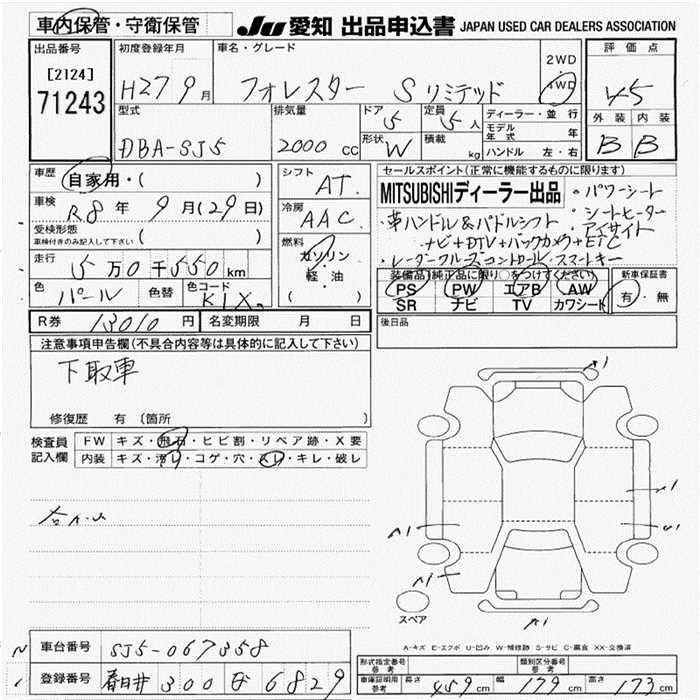 車内保管・守衛保管
JU 愛知 出品申込書 JAPAN USED CAR DEALERS ASSOCIATION
出品番号
[2124]
71243
初度登録年月
H27 9月
車名・グレード
フォレスター Sリミテッド
2WD
4WD
評価点
4.5
外装 内装
B B
型式
DBA-SJ5
排気量
2000 cc
ドア
5
定員
5人
形状
W
積載
kg
ディーラー・並行
モデル年式 年
ハンドル 左・右
車歴
自家用・( )
車検
R8年 9月(29日)
受検形態
車検付きのみ記入して下さい ( )
走行
5万0千550km
色
パール
色替
色コード
K1X
シフト
AT.
冷房
AAC
燃料
ガソリン・
軽・油
( )
セールスポイント(正常に機能するものに限ります)
MITSUBISHIディーラー出品
・パワーシート
・シートヒーター
・アイサイト
・革ハンドル&パドルシフト
ナビ+DTV+バックカメラ+ETC
・レーダークルーズコントロール・スマートキー
装備品(純正品に限り○をつけてください)
PS PW エアB AW
SR ナビ TV カワシート
新車保証書
有・無
R券 13010円
名変期限 月 日
後日品
注意事項申告欄(不具合内容等は具体的に記入して下さい)
下取車
修復歴 有 〔箇所 〕
検査員
記入欄
FW キズ・飛石・ヒビ割・リペア跡・X要
内装 キズ・汚レ・コゲ・穴・スレ・キレ・破レ
A1
A1
A1
スペア
A-キズ E-エクボ U-凹み W-補修跡 S-サビ C-腐食 XX-交換済
車台番号
SJ5-067358
登録番号
春日井 300 6829
形式指定番号
参考
類別区分番号
参考
車庫証明用
参考
長さ 459cm
幅 179cm
高さ 173cm